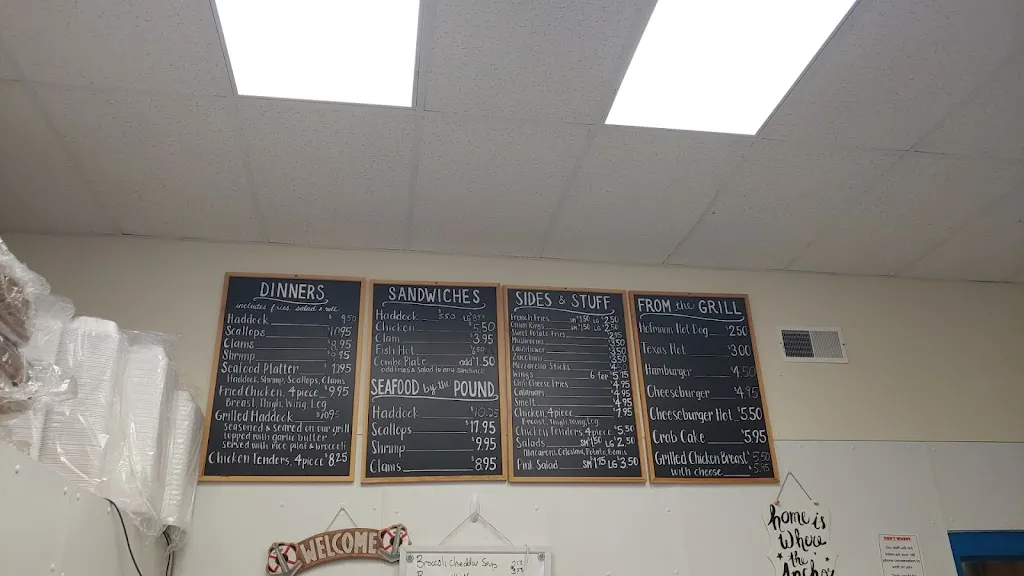 DINNERS
includes fries, salad & roll
Haddock $9.50
Scallops 10.95
Clams 8.95
Shrimp 9.95
Seafood Platter 11.95
Haddock, Shrimp, Scallops, Clams
Fried Chicken, 4 piece $9.95
Breast, Thigh, Wing, Leg
Grilled Haddock $10.95
seasoned & seared on our grill
topped with garlic butter
served with rice pilaf & broccoli
Chicken Tenders, 4 piece $8.25
SANDWICHES
Haddock
Chicken 5.50
Clam 3.95
Fish Hot
Combo Plate add 1.50
add fries & salad to any sandwich
SEAFOOD by the POUND
Haddock $10.25
Scallops $17.95
Shrimp $9.95
Clams $8.95
SIDES & STUFF
French Fries SM $1.50 LG $2.50
Onion Rings SM $1.50 LG $2.50
Sweet Potato Fries
Mushrooms 3.50
Cauliflower 3.50
Zucchini 3.50
Mozzarella Sticks
Wings 6 for $5.75
Chili Cheese Fries
Calamari 4.95
Smelt 4.95
Chicken 4 piece $7.95
Breast, Thigh, Wing, Leg
Chicken Tenders 4 piece $5.50
Salads SM $1.50 LG $2.50
Macaroni, Coleslaw, Potato, Beans
Pink Salad SM $1.75 LG $3.50
FROM the GRILL
Hofmann Hot Dog $2.50
Texas Hot $3.00
Hamburger $4.50
Cheeseburger $4.95
Cheeseburger Hot $5.50
Crab Cake $5.95
Grilled Chicken Breast $5.50
with cheese $5.95
WELCOME
Broccoli Cheddar Soup
home is
where
the
Anchor